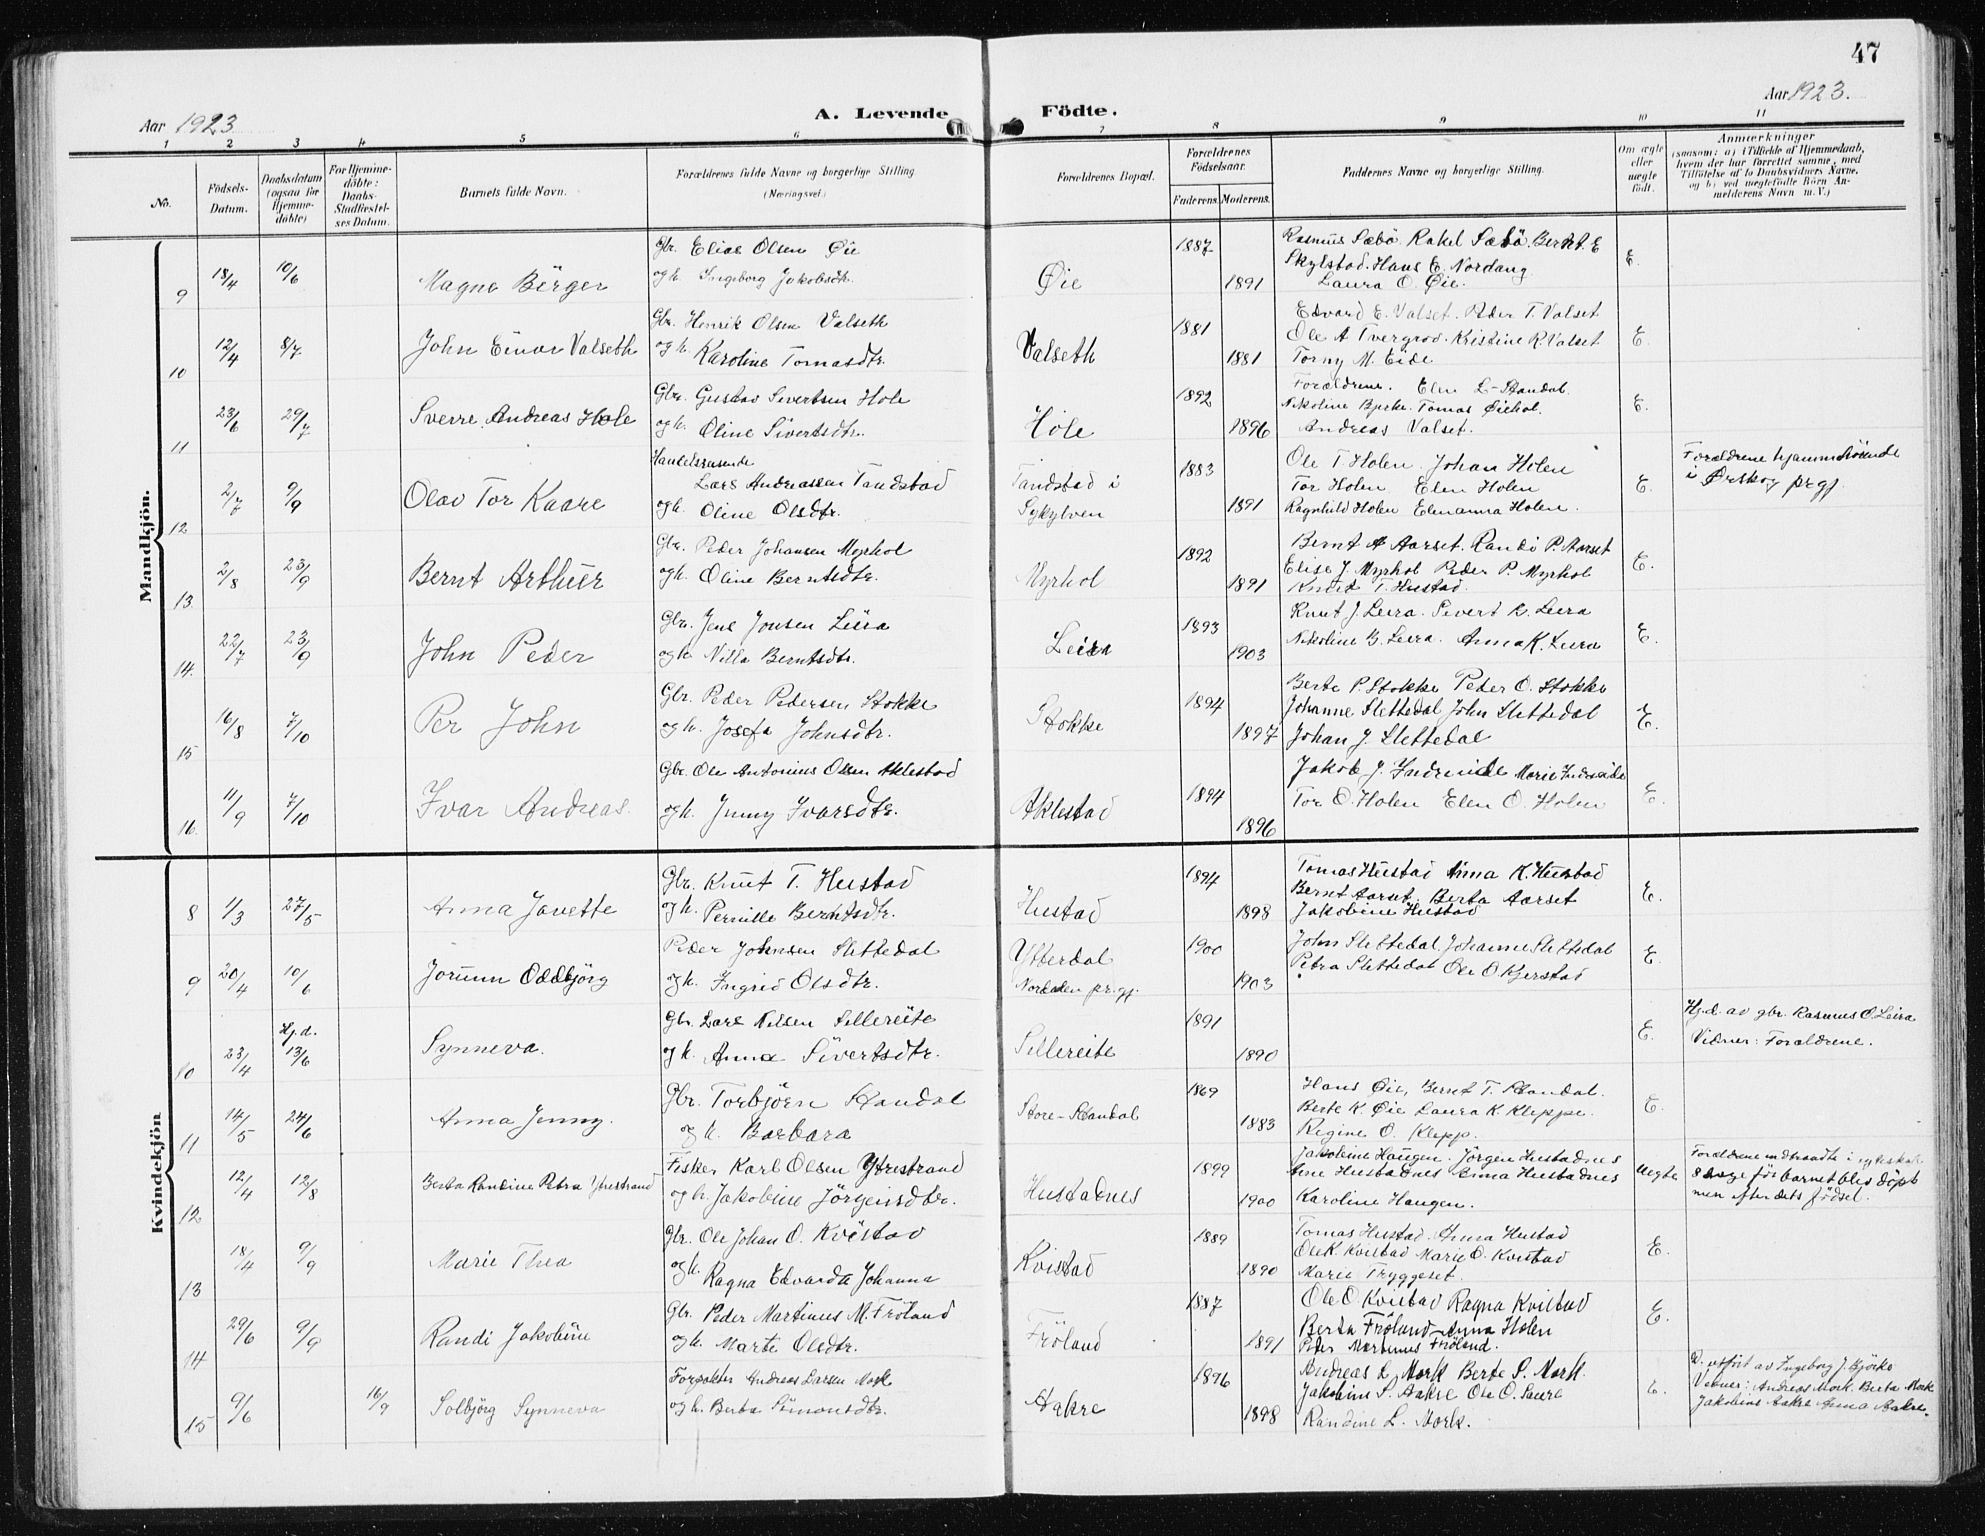 47
Aar 1923
A. Levende
Födte.
Aar 1923.
1 2 3 4 5 6 7 8 9 10 11
No.
Födsels-Datum.
Daabsdatum (ogsaa for Hjemme-döbte)
For Hjemme-döbte: Daabs-Stadfæstel-ses Datum.
Barnets fulde Navn.
Forældrenes fulde Navne og borgerlige Stilling
(Næringsvei.)
Forældrenes Bopæl.
Forældrenes Födselsaar.
Faderens. Moderens.
Faddernes Navne og borgerlige Stilling.
Om ægte eller uægte födt.
Anmærkninger
(saasom: a) i Tilfælde af Hjemmedaab,
hvem der har forrettet samme, med
Tilföielse af to Daabsvidners Navne,
og b) ved uægtefödte Börn An-
melderens Navn m. V.)
Mandkjön.
9 18/4 10/6 Magne Börger
Gbr. Elias Olsen Øie
og h. Ingeborg Jakobsdtr.
Øie 1887 1891
Rasmus Sæbö. Rakel Sæbö. Bernt. E
Skylstad. Hans E. Nordang
Laura O. Øie.
E.
10 12/4 8/7 John Einar Valseth
Gbr. Henrik Olsen Valseth
og h. Karoline Tomasdtr.
Valseth 1881 1881
Edvard E. Valset. Peder T. Valset
Ole A Tvergrov. Kristine R. Valset
Torny M. Eide
E.
11 23/6 29/7 Sverre Andreas Hole
Gbr. Gustav Sivertsen Hole
og h. Oline Sivertsdtr.
Hole 1892 1896
Forældrene. Elen L. Standal
Nikoline Bjerke. Tomas Øiehol.
Andreas Valset.
E.
12 2/7 9/9 Olav Tor Kaare
Handelsreisende
Lars Andreassen Tandstad
og h. Oline Olsdtr.
Tandstad i
Sykylven
1883 1891
Ole T. Holen. Johan Holen
Tor Holen Elen Holen
Ragnhild Holen Elenanna Holen.
E.
Forældrene hjemmehörende
i Ørskog prgj.
13. 2/8 23/9 Bernt Arthur
Gbr. Peder Johansen Myrhol
og h. Oline Berntsdtr.
Myrhol 1892 1891
Bernt A Aarset. Randi P. Aarset
Elise J. Myrhol Peder P. Myrhol
Knut T. Hustad.
E.
14. 22/7 23/9 John Peder
Gbr. Jens Jonsen Leira
og h. Nilla Berntsdtr.
Leira 1893 1903
Knut J. Leira. Sivert R. Leira
Nikoline B. Leira. Anna K. Leira
E.
15 16/8 7/10 Per John
Gbr. Peder Pedersen Stokke
og h. Josefa Johnsdtr.
Stokke 1894 1897
Berte P. Stokke Peder O. Stokke
Johanne Slettedal John Slettedal
Johan J. Slettedal
E.
16. 11/9 7/10 Ivar Andreas.
Gbr. Ole Antonius Olsen Aklestad
og h. Jenny Ivarsdtr.
Aklestad 1894 1896
Jakob J. Indreeide Marie Indreeide
Tor O. Holen Elen O. Holen
E.
Kvindekjön
8 1/3 27/5 Anna Javette
Gbr. Knut T. Hustad
og h. Pernille Berntsdtr.
Hustad 1894 1898
Tomas Hustad Anna K. Hustad
Bernt Aarset. Berta Aarset
Jakobine Hustad
E.
9 20/4 10/6 Jorunn Oddbjörg
Peder Johnsen Slettedal
og h. Ingrid Olsdtr.
Ytterdal
Norddalen pr.gj.
1900 1903
John Slettedal. Johanne Slettedal
Petra Slettedal Ole O. Kjerstad
E.
10 23/4 Hj.d. 13/6 Synneva.
Gbr. Lars Nilsen Sellereite
og h. Anna Sivertsdtr.
Sellereite 1891 1890
E.
Hjd. av gbr. Rasmus O. Leira
Vidner: Forældrene.
11 14/5 24/6 Anna Jenny.
Gbr. Torbjörn Standal
og h. Barbara
Store-Standal 1869 1883
Hans Øie, Bernt T. Standal.
Berte K. Øie Laura K. Kleppe.
Regine O. Klepp.
E.
12 12/4 12/8 Berta Randine Petra Ytrestrand
Fisker Karl Olsen Ytrestrand
og h. Jakobine Jörgensdtr.
Hustadnes 1899 1900
Jakobine Haugen. Jörgen Hustadnes
Ane Hustadnes Anna Hustadnes
Karoline Haugen.
Uegte
Forældrene indtraadte i egteskab
8 dage för barnet blev döpt
men efter dets födsel.
13 18/4 9/9 Marie Thea
Gbr. Ole Johan O. Kvistad
og h. Ragna Edvarda Johanna
Kvistad 1889 1890
Tomas Hustad. Anna Hustad
Ole K. Kvistad Marie O. Kvistad
Marie Tryggeset.
E.
14 29/6 9/9 Randi Jakobine
Gbr. Peder Martinus M. Fröland
og h. Marte Olsdtr.
Fröland 1887 1891
Ole O. Kvistad Ragna Kvistad
Berta Fröland Anna Holen
Peder Martinus Fröland.
E.
15 9/6 16/9 Solbjörg Synneva
Forpakter Andreas Larsen Mork
og h. Berta Simonsdtr.
Aakre 1896 1898
Andreas L. Mork Berte S. Mork
Jakobine S. Aakre Ole O. Saure
Randine L. Mork.
E.
D. utfört av Ingeborg J. Bjerke
Vidner: Andreas Mork. Berta Mork
Jakobine Aakre Anna Aakre.